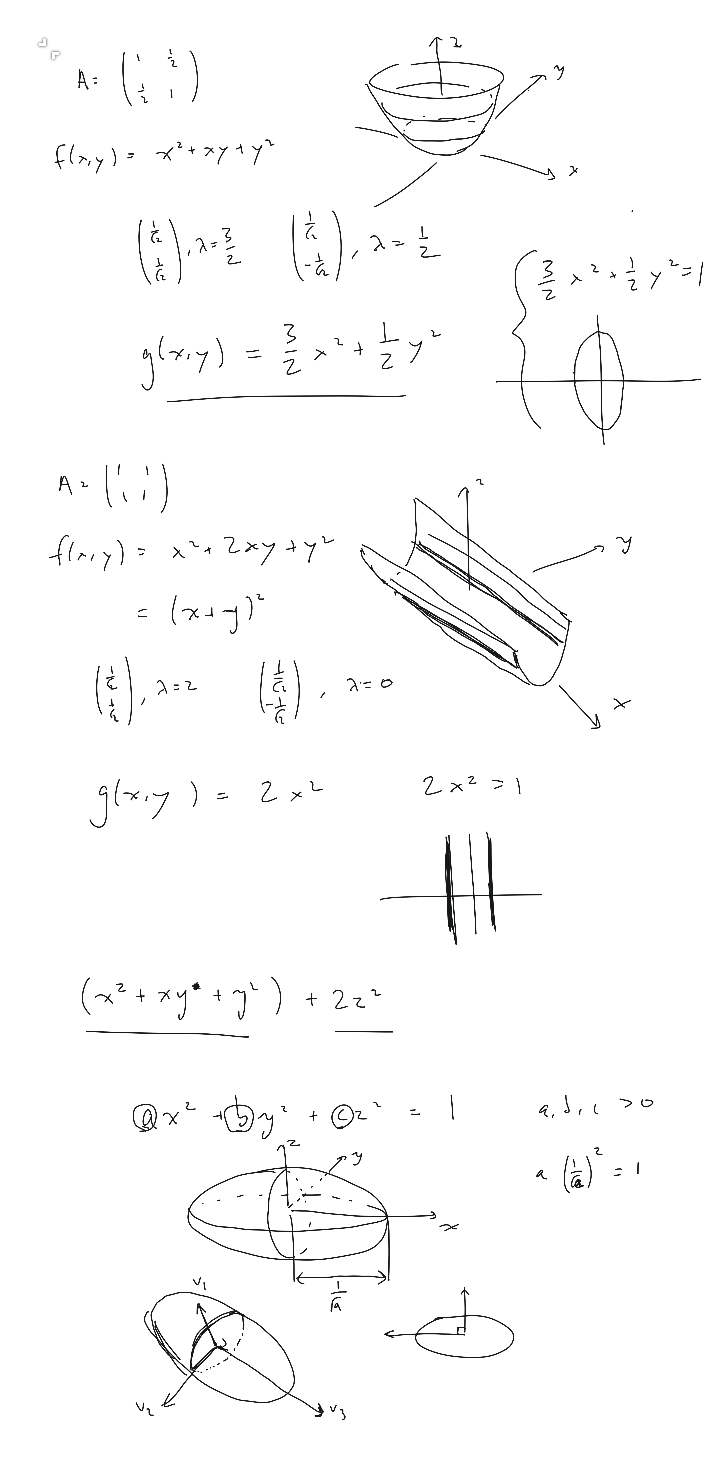 A = ( 1 1/2 ; 1/2 1 )
z
y
x
f(x,y) = x² + xy + y²
( 1/√2 ; 1/√2 ), λ = 3/2
( 1/√2 ; -1/√2 ), λ = 1/2
{ 3/2 x² + 1/2 y² = 1
g(x,y) = 3/2 x² + 1/2 y²
A = ( 1 1 ; 1 1 )
z
y
x
f(x,y) = x² + 2xy + y²
= (x+y)²
( 1/√2 ; 1/√2 ), λ = 2
( 1/√2 ; -1/√2 ), λ = 0
g(x,y) = 2x²
2x² = 1
(x² + xy + y²) + 2z²
ax² + by² + cz² = 1
a, b, c > 0
a (1/√a)² = 1
z
y
x
1/√a
v₁
v₂
v₃